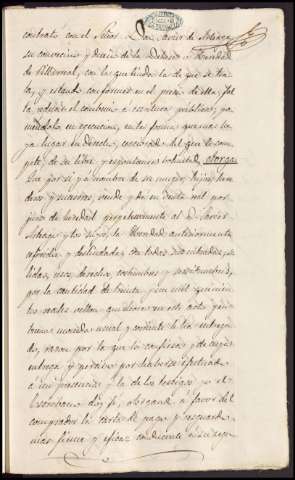 contrato con el Señor Don Javier de
su convecino y dueño de la Dehesa o Heredad
de Villarreal, con la que linda la de que se tra-
ta, y estando conformes en el precio de ella, fal-
ta reducir el convenio a escritura pública; po-
niendolo en ejecucion, en la forma que mas ha-
ya lugar en derecho, cerciorado del que le com-
pete, de su libre y espontanea voluntad, otorga:
Que por sí y a nombre de sus hijos, here-
deros y sucesores, vende y da en venta real por
juro de heredad perpetuamente al D. Javier
y los suyos, la Heredad anteriormente
referida y deslindada, con todas sus entradas, sa-
lidas, usos, derechos, costumbres y servidumbres,
por la cantidad de treinta y un mil quinien-
tos reales vellon, que ahora en este acto y en
buena moneda usual y corriente le ha entrega-
do, razon por la que lo confiesa y de cuya
entrega y por haberse efectuado
a mi presencia y la de los testigos, yo el
Escribano doy fé, otorgando a favor del
comprador la carta de pago y resguardo
mas firme y eficaz conducente a su segu-